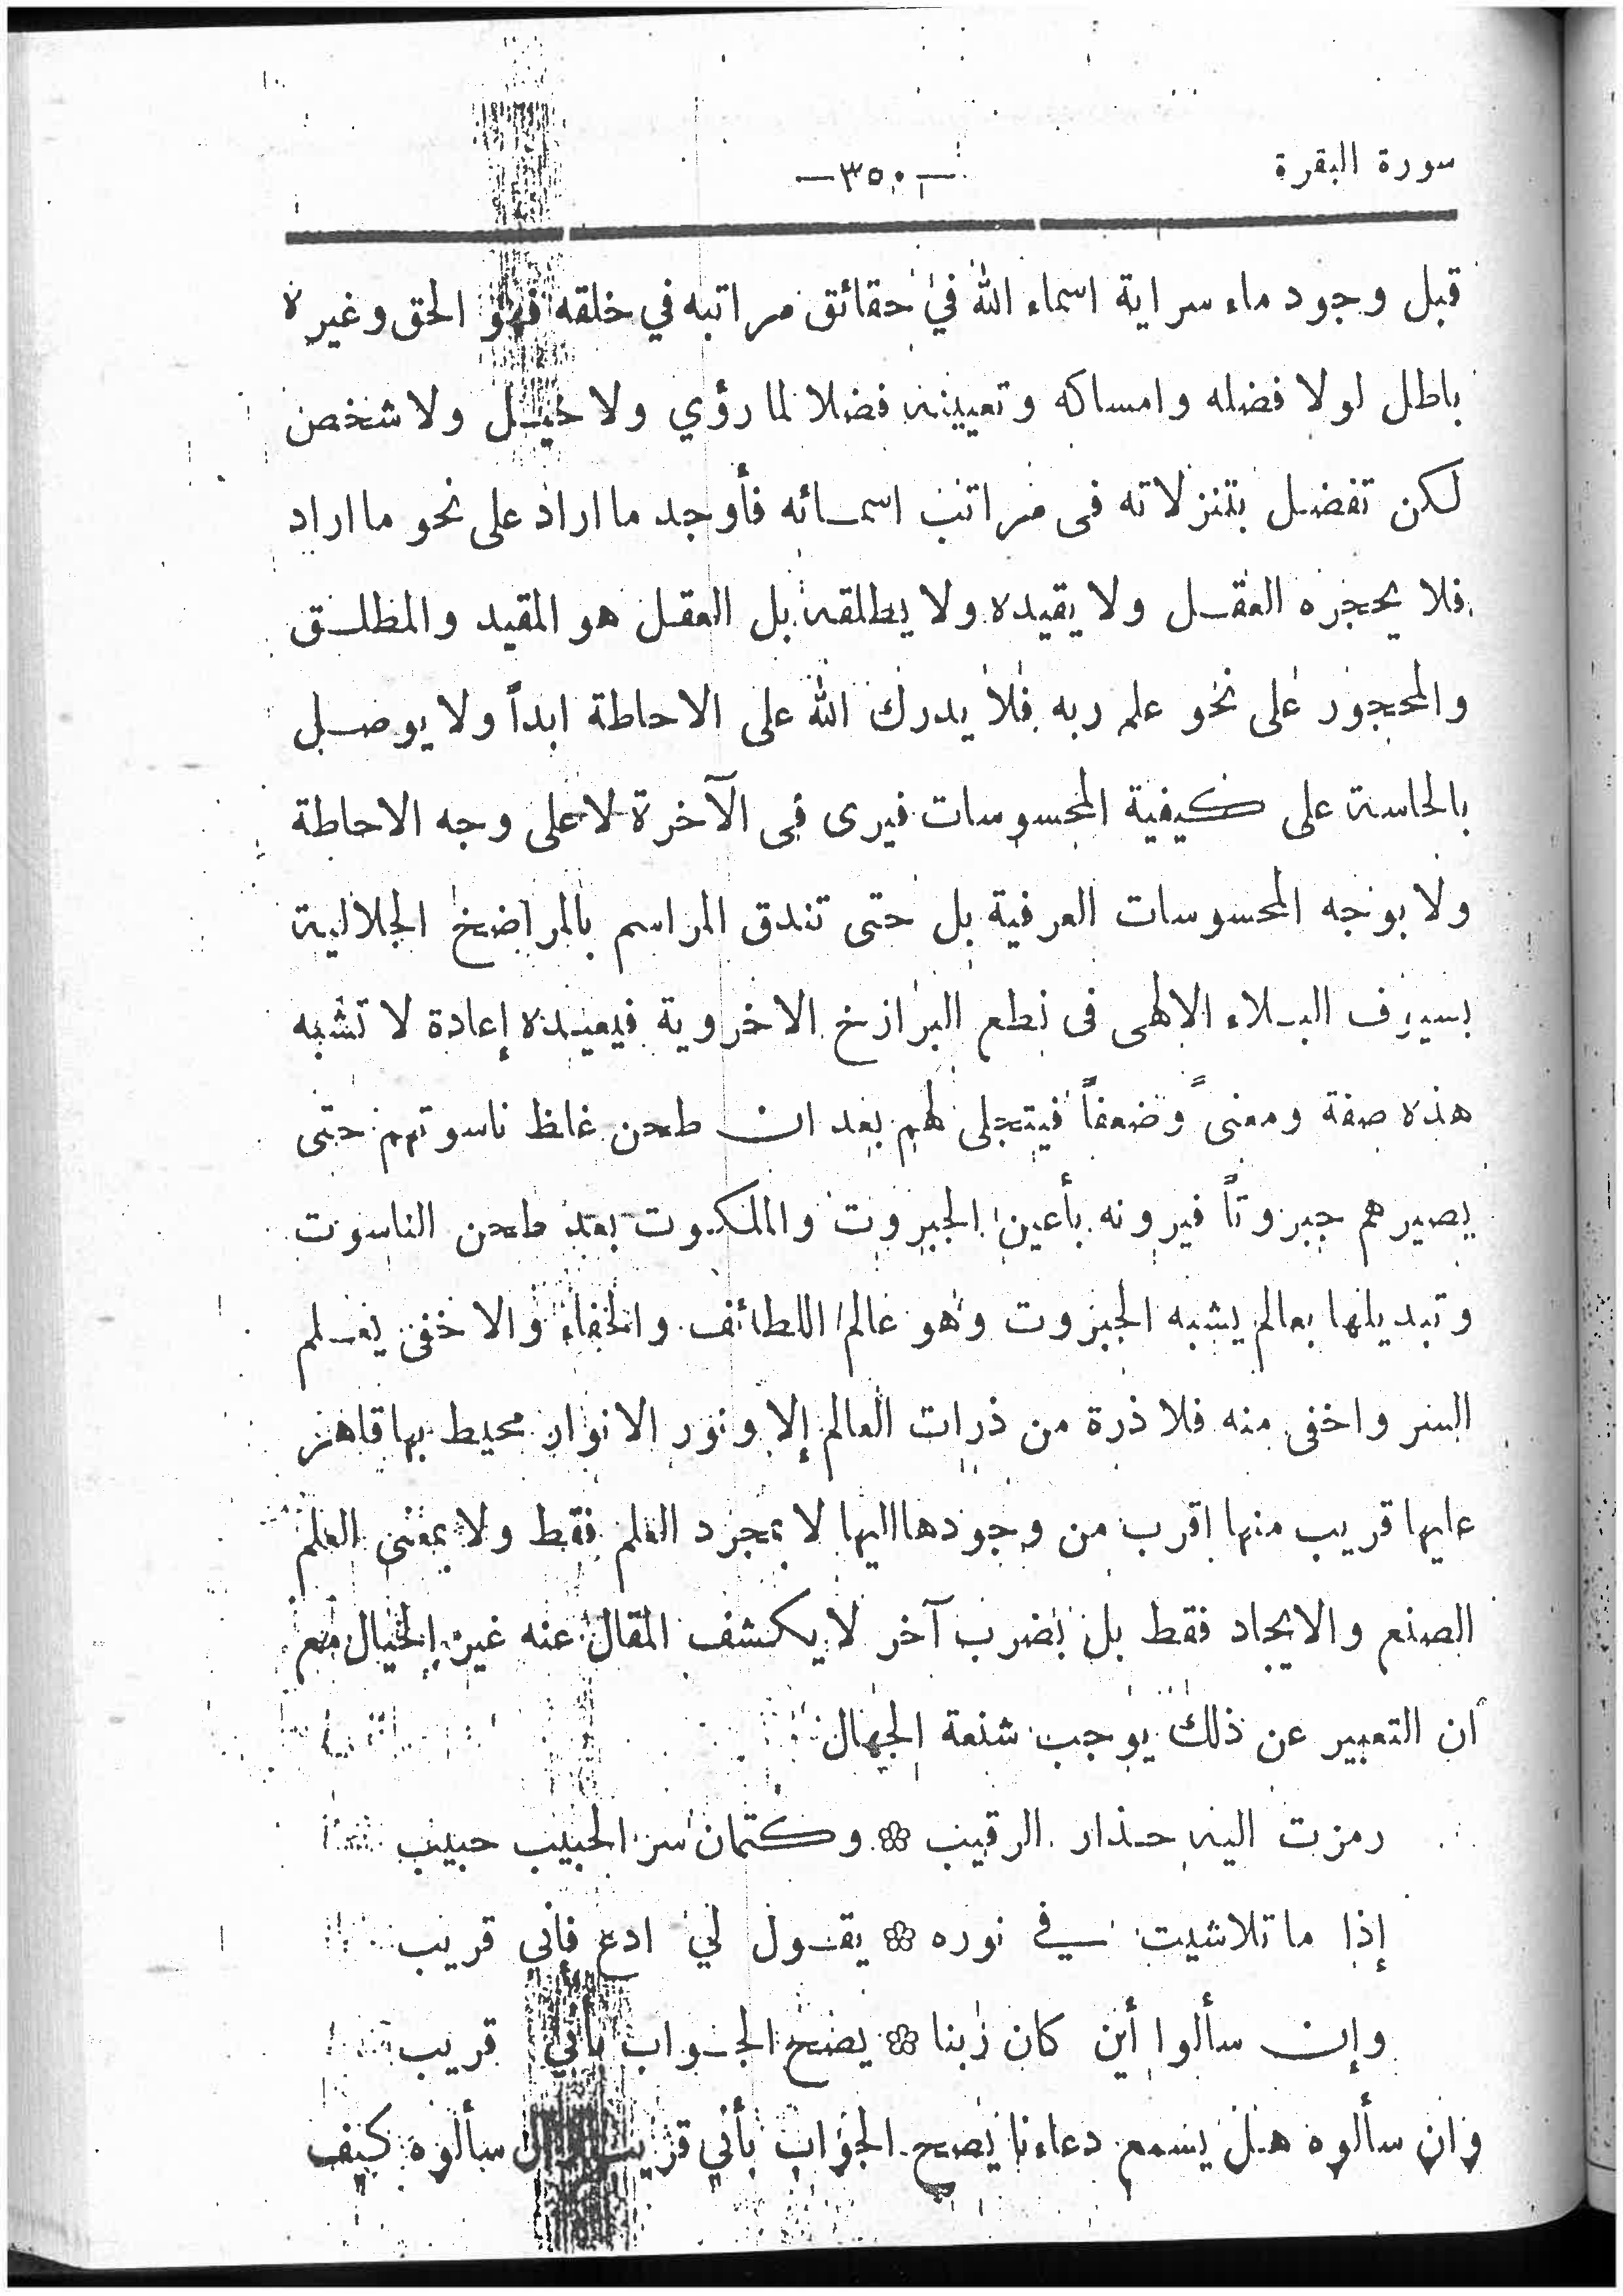 سورة البقرة
—٣٥٠—
قبل وجود ماء سراية اسماء الله في حقائق مراتبه في خلقه فهو الحق وغيره
باطل لولا فضله وامساكه وتعيينه فضلا لما رؤي ولا خيل ولا شخص
لكن تفضل بتنزلاته فى مراتب اسمائه فأوجد ما اراد على نحو ما اراد
فلا يحجزه العقل ولا يقيده ولا يطلقه بل العقل هو المقيد والمطلق
والمحجوز على نحو علم ربه فلا يدرك الله على الاحاطة ابداً ولا يوصل
بالحاسة على كيفية المحسوسات فيرى فى الآخرة لا على وجه الاحاطة
ولا بوجه المحسوسات العرفية بل حتى تندق المراسم بالمراضخ الجلالية
بسيوف البلاء الالهى فى نطع البرازخ الاخروية فيعيده إعادة لا تشبه
هذه صفة ومعنىً وضعفاً فيتجلى لهم بعد ان طحن غلظ ناسوتهم حتى
يصيرهم جبروتاً فيرونه بأعين الجبروت والملكوت بعد طحن الناسوت
وتبديلها بعالم يشبه الجبروت وهو عالم اللطائف والخفاء والاخفى يعلم
السر واخفى منه فلا ذرة من ذرات العالم إلا ونور الانوار محيط بها قاهر
عليها قريب منها اقرب من وجودها اليها لا بمجرد العلم فقط ولا بمعنى العلم
الصنع والايجاد فقط بل بضرب آخر لا يكشف المقال عنه غير الخيال مع
ان التعبير عن ذلك يوجب شنعة الجهال
رمزت اليه حذار الرقيب ❀ وكتمان سر الحبيب حبيب
إذا ما تلاشيت في نوره ❀ يقول لي ادع فاني قريب
وإن سألوا أين كان ربنا ❀ يضح الجواب بأني قريب
وان سألوه هل يسمع دعاءنا يصح الجواب بأني قريب سألوه كيف